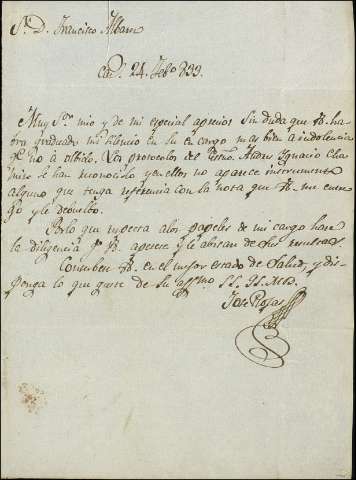 Sr. D. Francisco Albaro
Cadiz 24. Febo 833.
Muy Sr. mio y de mi especial aprecio: Sin duda que V. ha
bra graduado mi silencio en su encargo mas bien a indolencia
qe. no a olbido. Los protocolos del Esno. Albaro Ignacio
se han reconocido y en ellos no aparece instrumento
alguno que tenga referencia con la nota que V. me entre
gó y le debuelbo.
Por lo que respecta a los papeles de mi cargo hare
la diligencia pr. si aparece y le abisare de sus resultas.
Conserbese V. en el mejor estado de Salud, y dis
ponga lo que guste de su affmo. SS. QS.MB.
Jose Rojas